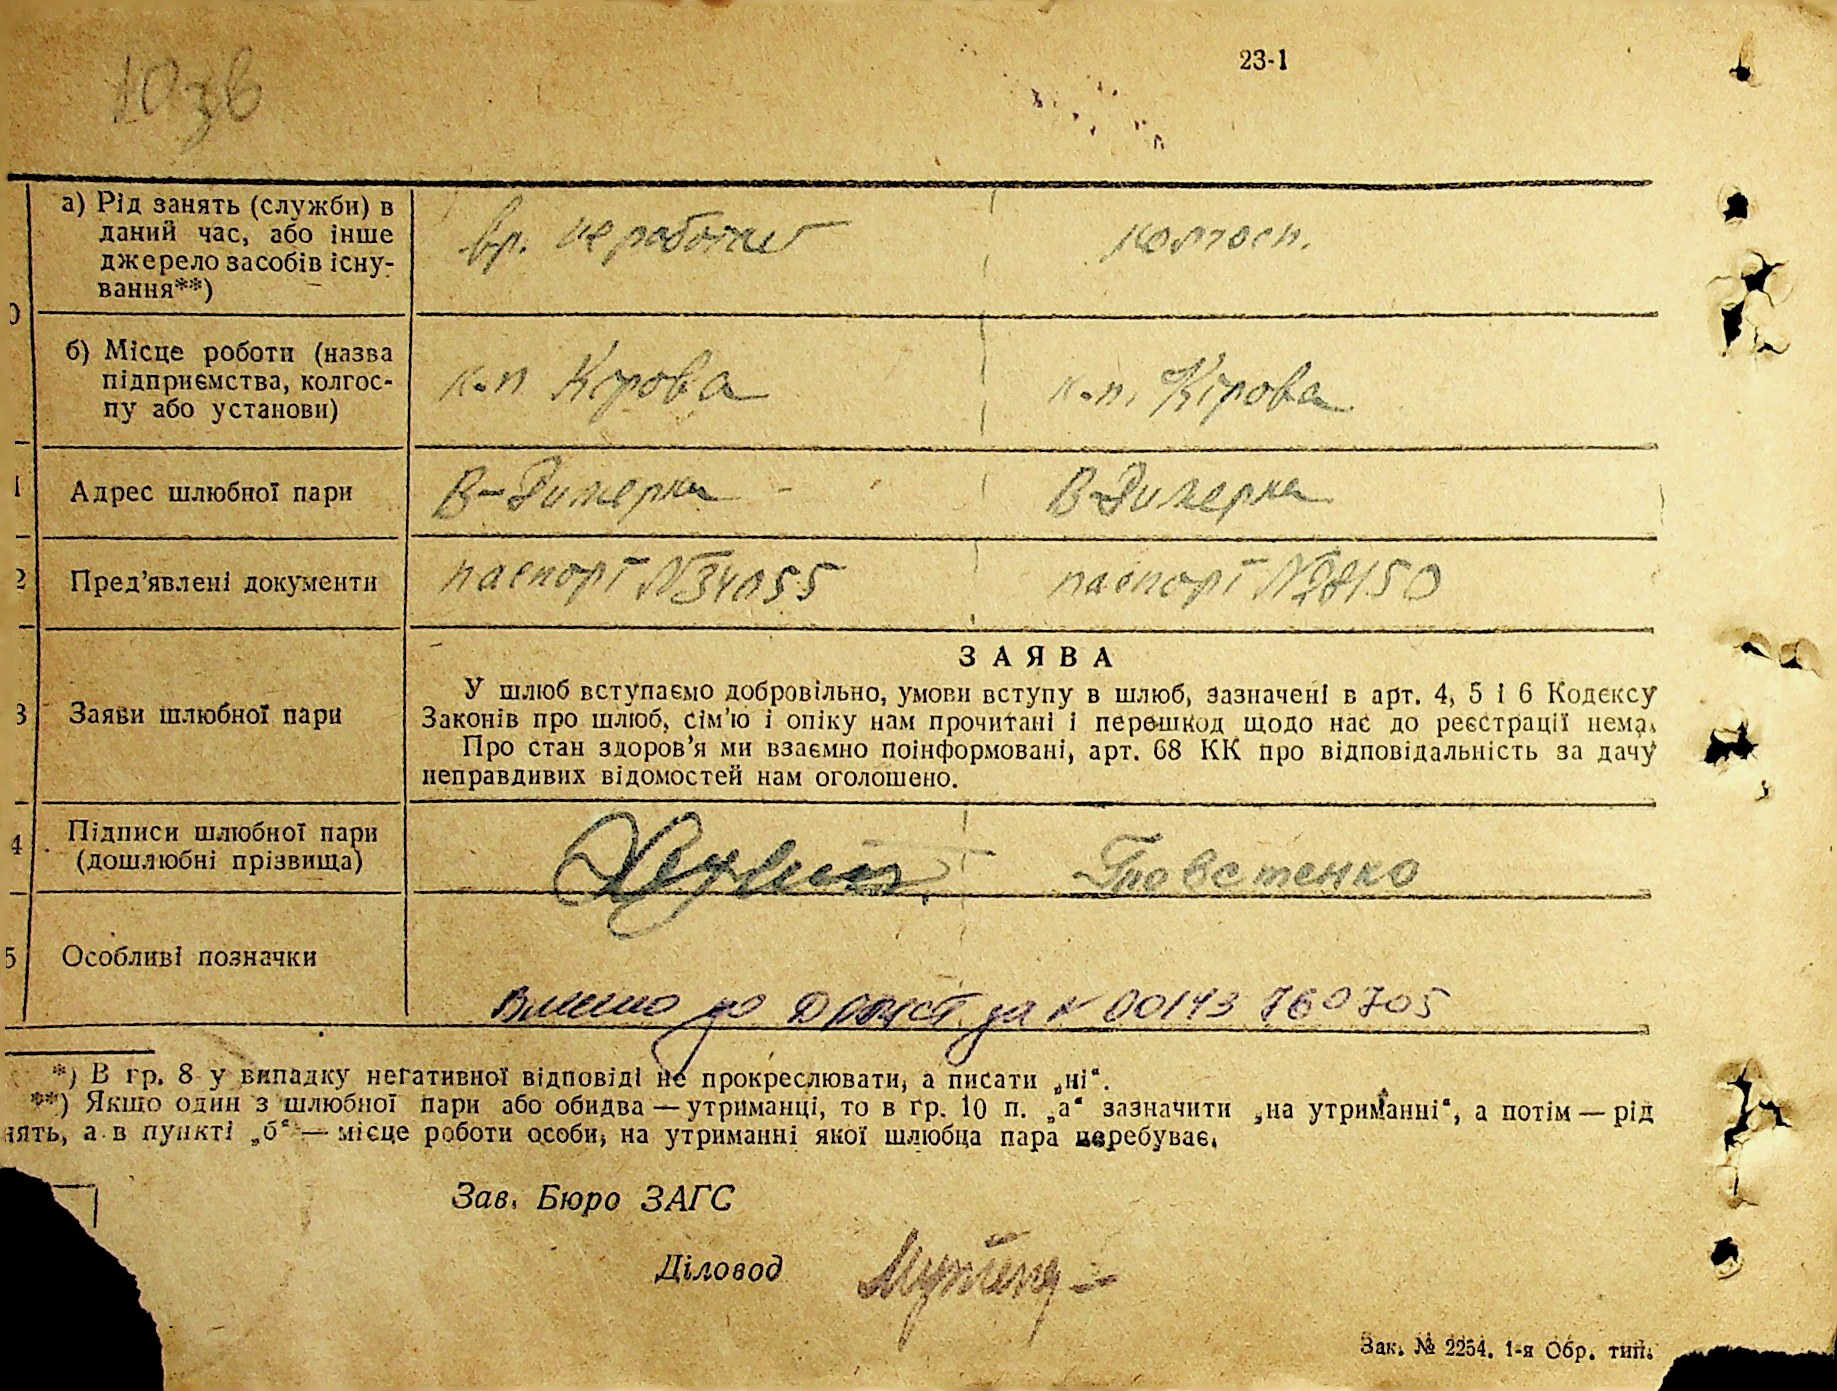 10 зв
23-1
а) Рід занять (служби) в
даний час, або інше
джерело засобів існу-
вання**)
вр. не работает
колгосп.
б) Місце роботи (назва
підприємства, колгос-
пу або установи)
к-п Кірова
к-п. Кірова
Адрес шлюбної пари
В-Димерка
В-Димерка
2
Пред'явлені документи
паспорт №34055
паспорт №28150
3
Заяви шлюбної пари
ЗАЯВА
У шлюб вступаємо добровільно, умови вступу в шлюб, зазначені в арт. 4, 5 і 6 Кодексу
Законів про шлюб, сім'ю і опіку нам прочитані і перешкод щодо нас до реєстрації нема.
Про стан здоров'я ми взаємно поінформовані, арт. 68 КК про відповідальність за дачу
неправдивих відомостей нам оголошено.
4
Підписи шлюбної пари
(дошлюбні прізвища)
5
Особливі позначки
Внесено до ДРАЦСГ за № 00143760705
*) В гр. 8 у випадку негативної відповіді не прокреслювати, а писати „ні“.
**) Якщо один з шлюбної пари або обидва — утриманці, то в гр. 10 п. „а“ зазначити „на утриманні“, а потім — рід
нять, а в пункті „б“ — місце роботи особи, на утриманні якої шлюбна пара перебуває.
Зав. Бюро ЗАГС
Діловод
Зак. № 2254. 1-я Обр. тип.